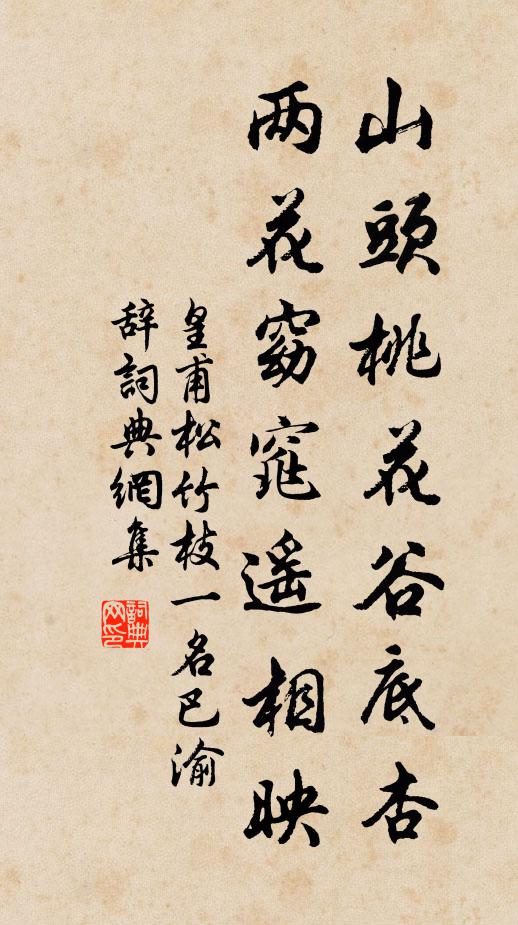 山頭桃花谷底杏
两花窈窕遥相映
皇甫松竹枝一名巴渝
辞詞典網集
詞典网印